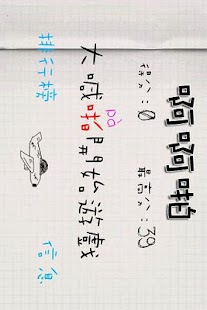 啊啊啪
得分:0 最高分:39
pà
大喊啪開始遊戲
排行榜 信息